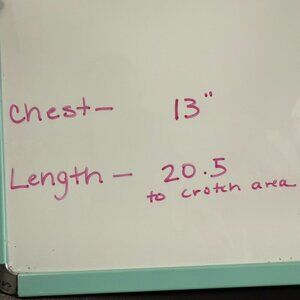 Chest— 13"
Length— 20.5
to crotch area